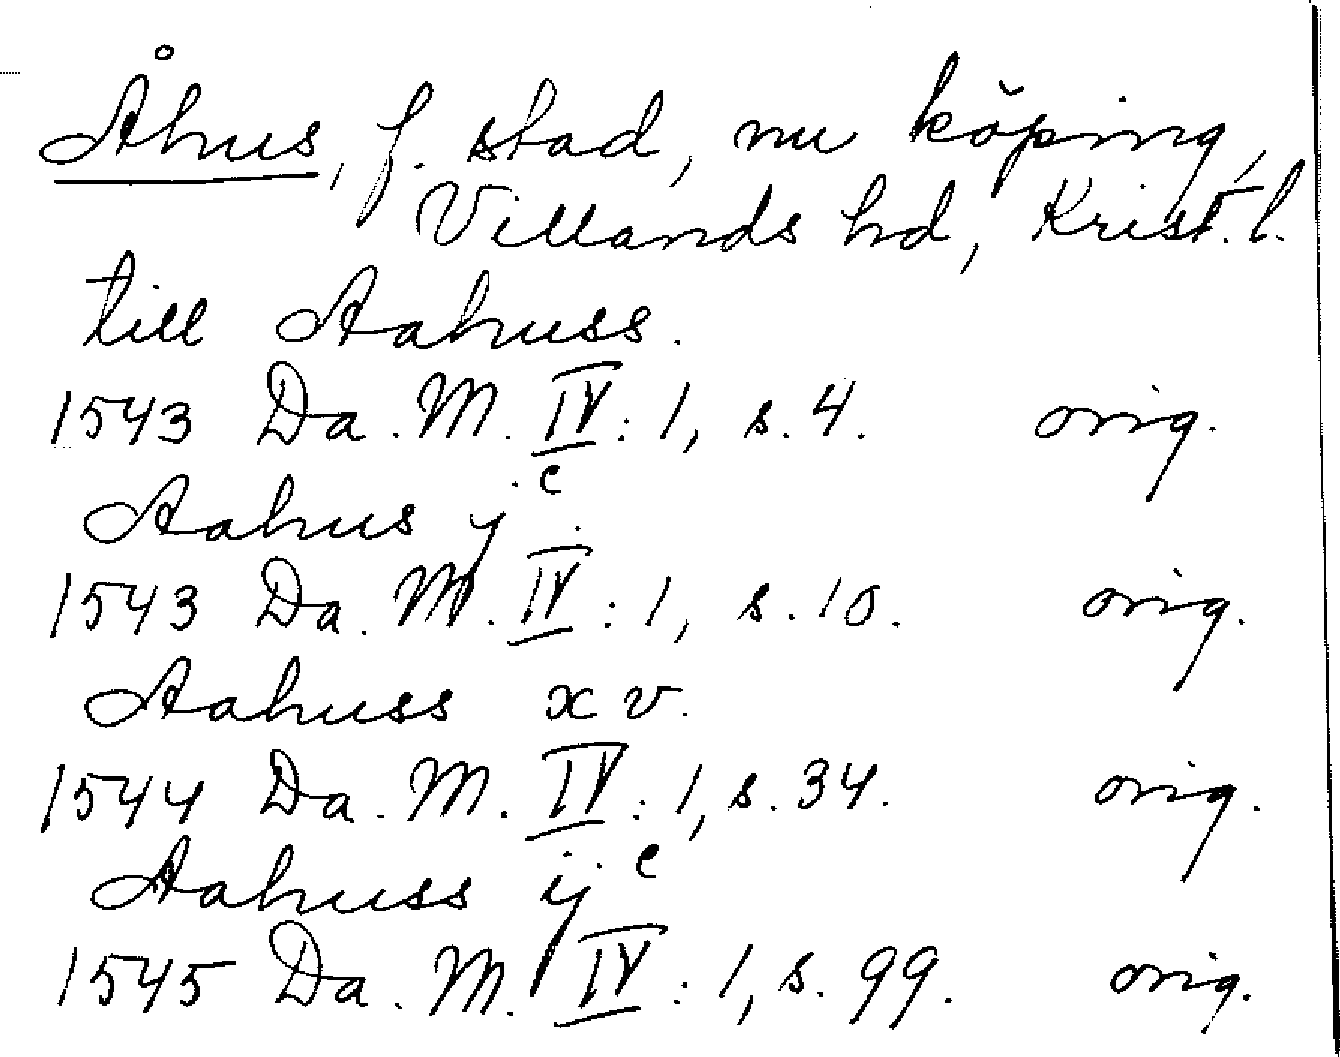 Åhus, f. stad, nu köping,
Villands hd, Krist. l.
till Aahuss.
1543 Da. M. IV: 1, s. 4. orig.
Aahus jᶜ.
1543 Da. M. IV: 1, s. 10. orig.
Aahuss xv.
1544 Da. M. IV: 1, s. 34. orig.
Aahuss ijᶜ
1545 Da. M. IV: 1, s. 99. orig.